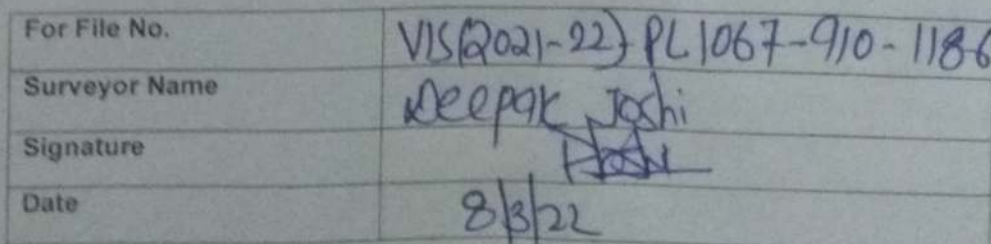 For File No. VIS(2021-22)-PL1067-910-1186
Surveyor Name Deepak Joshi
Signature
Date 8/3/22